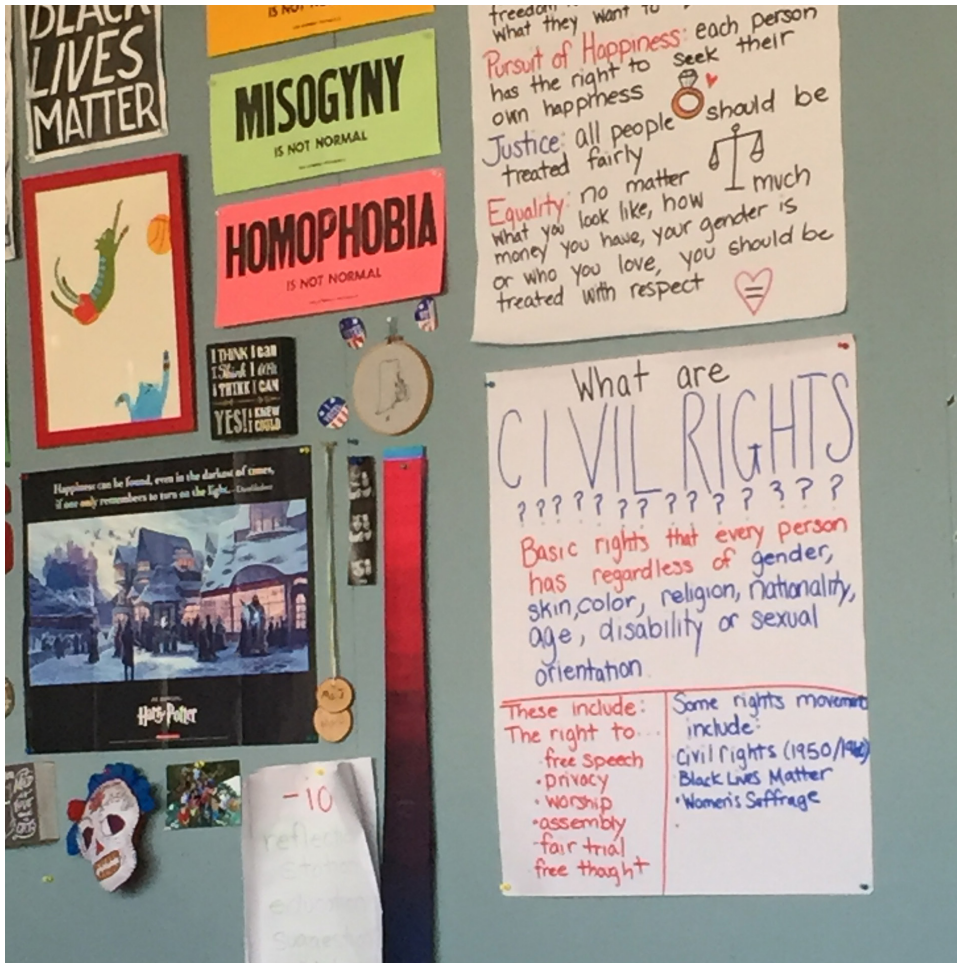 BLACK
LIVES
MATTER
IS NOT
MISOGYNY
IS NOT NORMAL
HOMOPHOBIA
IS NOT NORMAL
I THINK I can
I Think I can
I THINK I CAN
YES! I KNEW
I COULD
Happiness can be found, even in the darkest of times,
if one only remembers to turn on the light.
Harry Potter
-10
freedom
what they want to
Pursuit of Happiness: each person
has the right to seek their
own happiness
Justice: all people should be
treated fairly
Equality: no matter
what you look like, how much
money you have, your gender is
or who you love, you should be
treated with respect
=
What are
CIVIL RIGHTS
? ? ? ? ? ? ? ? ? ? ? ? ?
Basic rights that every person
has regardless of gender,
skin, color, religion, nationality,
age, disability or sexual
orientation
These include:
The right to...
free speech
• privacy
• worship
• assembly
- fair trial
free thaght
Some rights movement
include:
Civil rights (1950/
Black Lives Matter
• Women's Suffrage